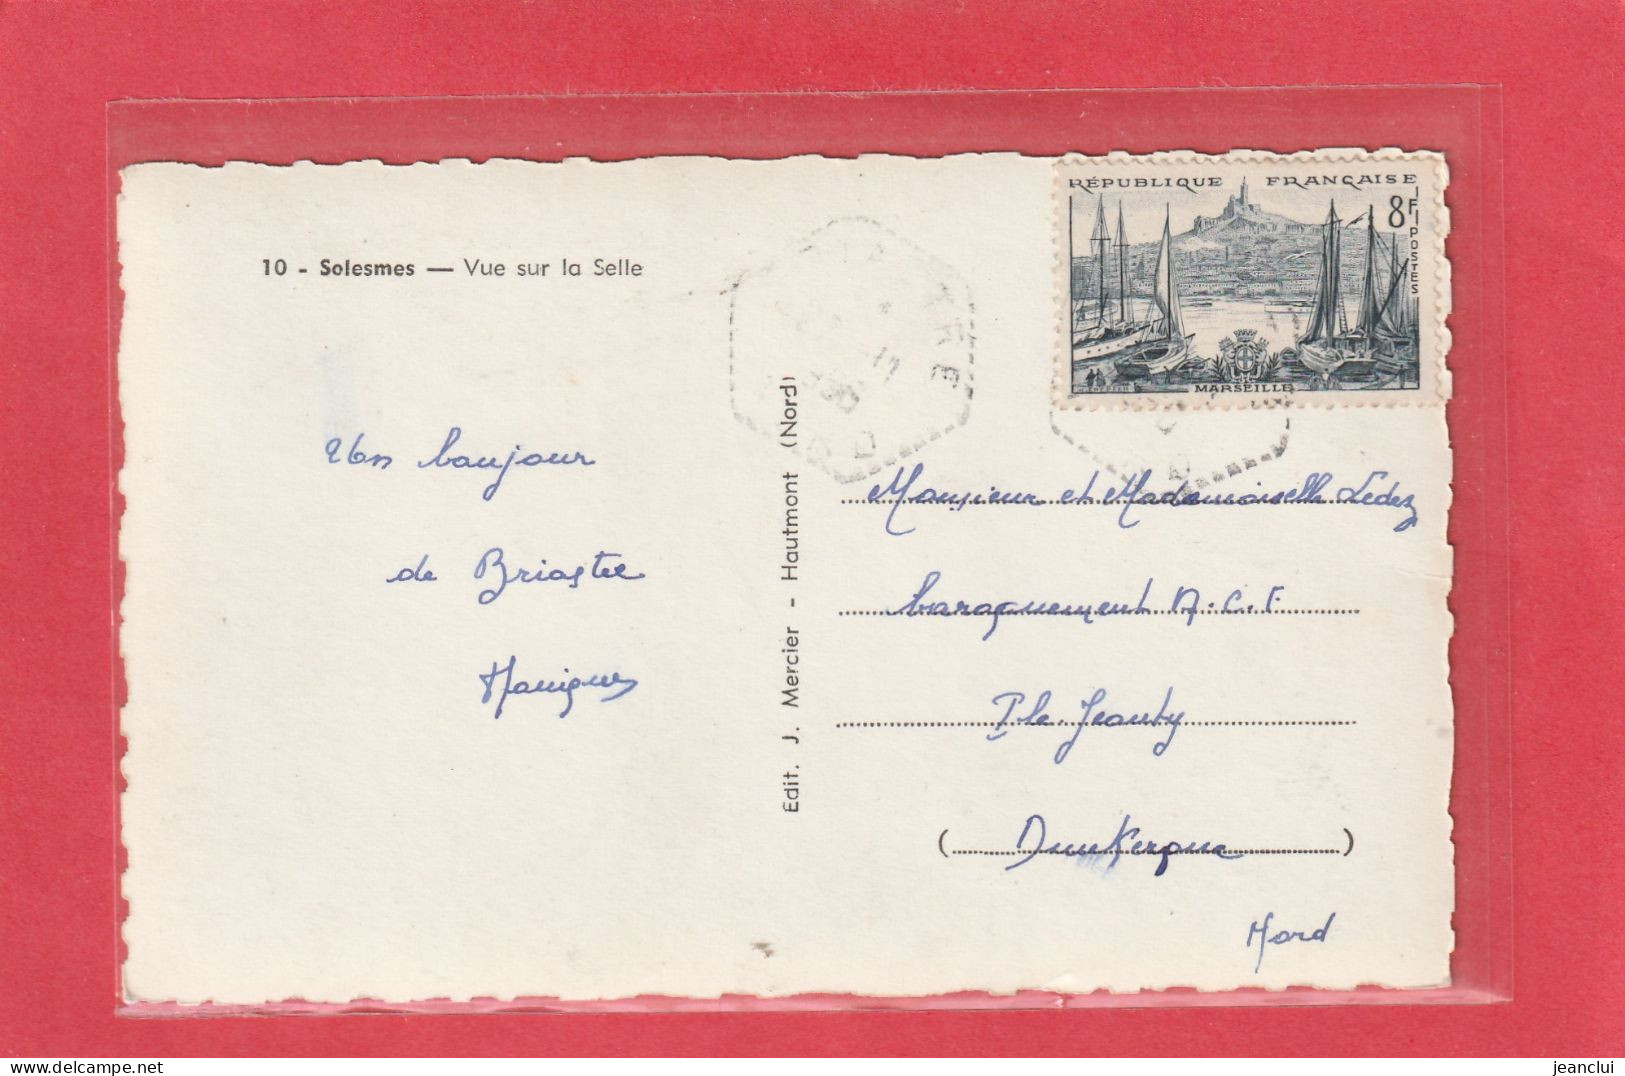 10 - Solesmes — Vue sur la Selle
Un bonjour
de Briastre
Edit. J. Mercier - Hautmont (Nord)
RÉPUBLIQUE FRANÇAISE
8F
POSTES
MARSEILLE
Monsieur et Mademoiselle Ledez
baraquement A.C.F.
Ple Jeanty
(Dunkerque)
Nord
jeanclui